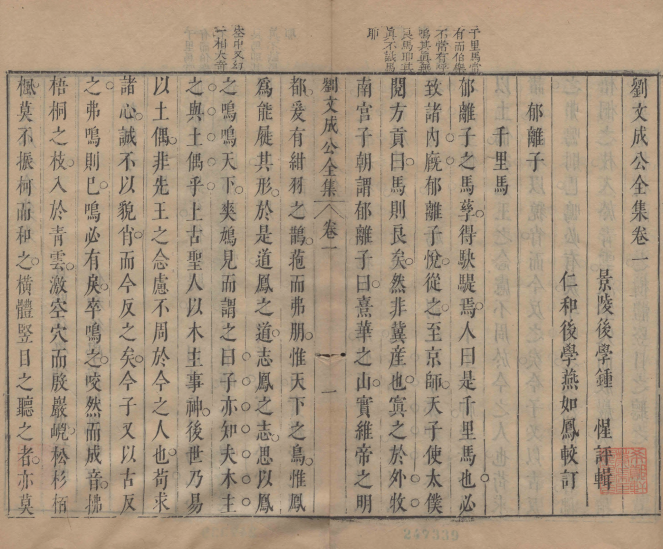 劉文成公全集卷一
景陵後學鍾 惺評輯
仁和後學燕如鳳較訂
郁離子
千里馬
郁離子之馬孳得駃騠焉人曰是千里馬也必
致諸內廐郁離子悅從之至京師天子使太僕
閱方貢曰馬則良矣然非冀産也寘之於外牧
南宮子朝謂郁離子曰熹華之山實維帝之明
千里馬常
有而伯樂
不常有
良馬即其
眞不識馬
耶
劉文成公全集
卷一
一
都爰有紺羽之鵲菢而弗朋惟天下之鳥惟鳳
爲能屣其形於是道鳳之道志鳳之志思以鳳
之鳴鳴天下奭鳩見而謂之曰子亦知夫木主
之與土偶乎上古聖人以木主事神後世乃易
以土偶非先王之念慮不周於今之人也苟求
諸心誠不以貌肖而今反之矣今子又以古反
之弗鳴則已鳴必有戾卒鳴之咬然而成音拂
梧桐之枝入於青雲激空穴而殷巖巆松杉栢
楓莫不振柯而和之橫體豎目之聽之者亦莫
247339